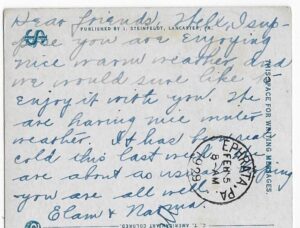 Dear friends, Well, I sup-
PUBLISHED BY I. STEINFELDT, LANCASTER, PA.
pose you are enjoying
nice warm weather, and
we would sure like to
enjoy it with you. We
are having nice winter
weather. It has been real
cold this last week. We
are about as usual. Hoping
you are all well.
Elam & Nanna.
THIS SPACE FOR WRITING MESSAGES.
EPHRATA, PA.
FEB 5
8 AM
1929
C. T. AMERICAN COLORED